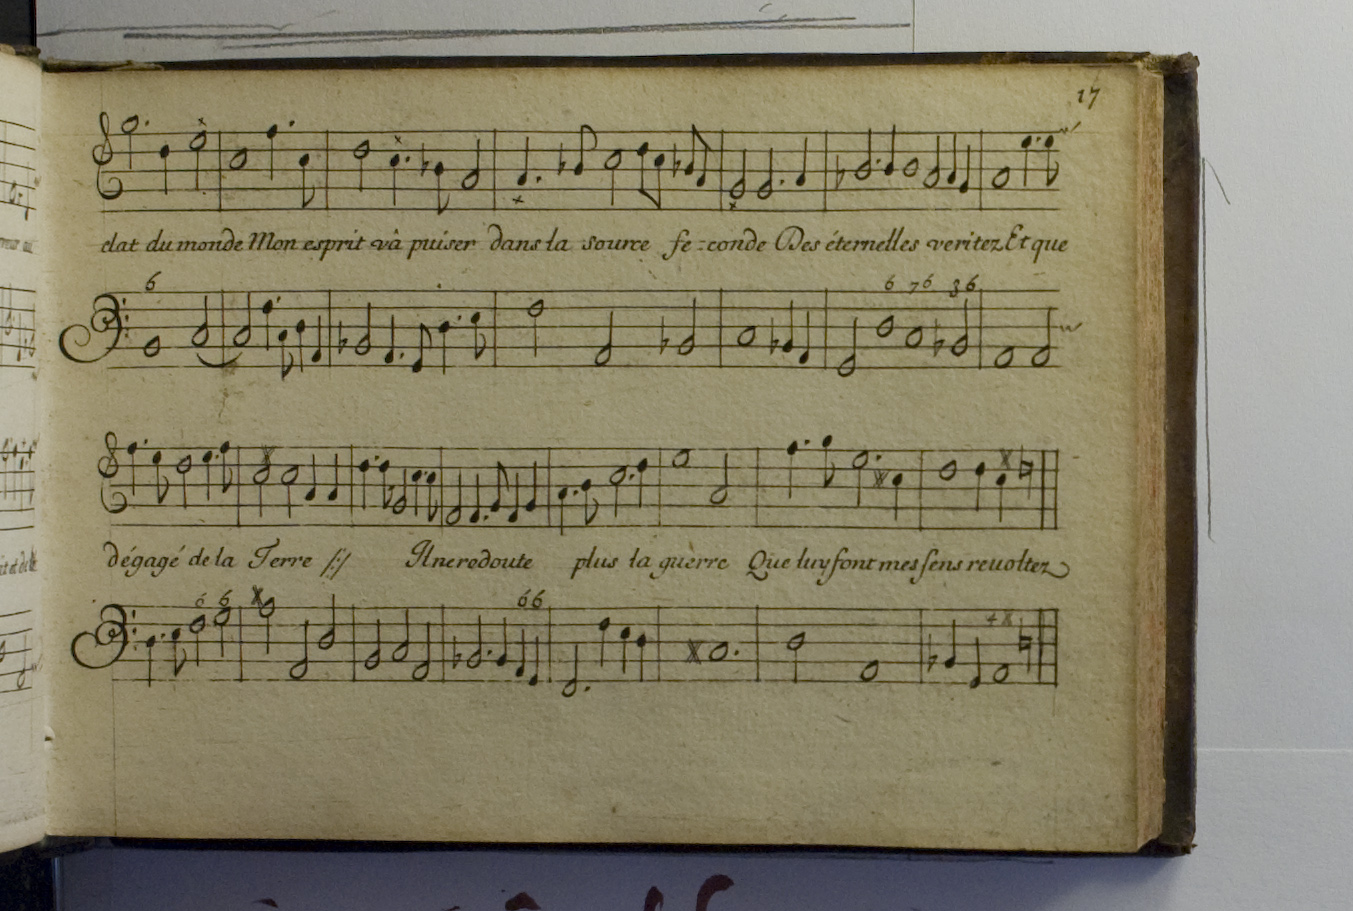 17
clat du monde Mon esprit vâ puiser dans la source fe=conde Des éternelles veritez Et que
6
6 76 36
dégagé de la Terre /:/ Il ne redoute plus la guerre Que luy font mes sens reuoltez
6 6 x 66
x
4 x